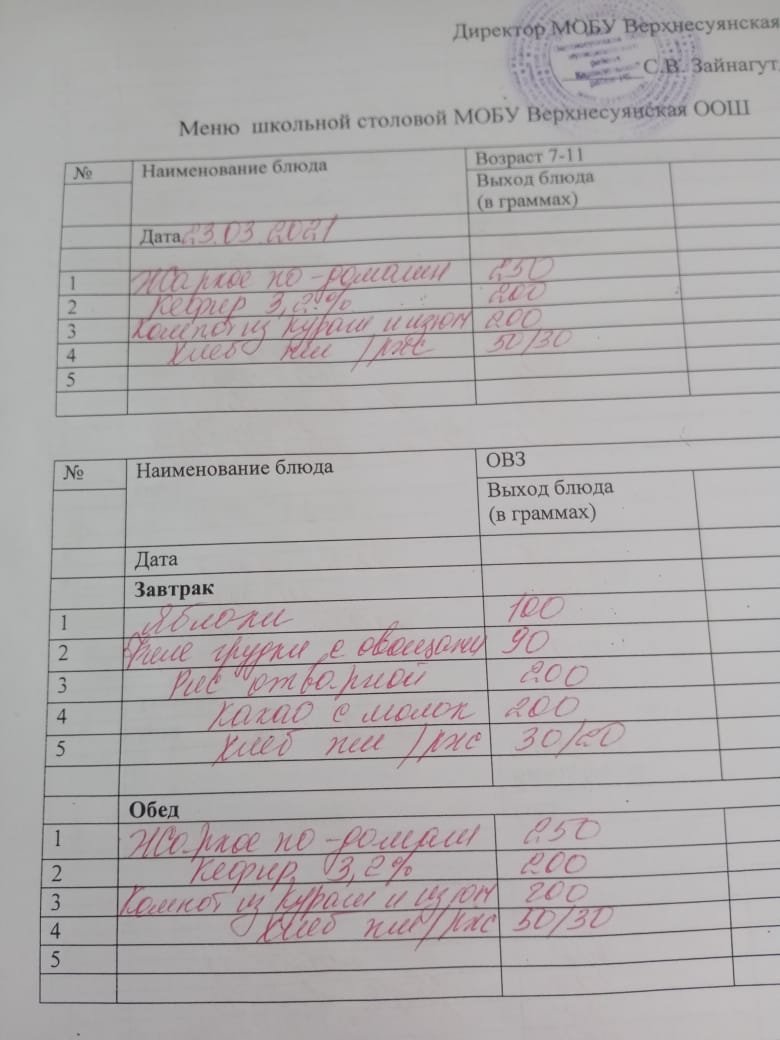 Директор МОБУ Верхнесуянская
С.В. Зайнагут
Меню школьной столовой МОБУ Верхнесуянская ООШ
№ Наименование блюда Возраст 7-11
Выход блюда
(в граммах)
Дата 23.03.2021
1 Жаркое по-домашн 250
2 Кефир 3,2% 200
3 Компот из кураги и изюм 200
4 Хлеб пш/рж 50/30
5
№ Наименование блюда ОВЗ
Выход блюда
(в граммах)
Дата
Завтрак
1 Яблоки 100
2 Филе грудки с овощами 90
3 Рис отварной 200
4 Какао с молок 200
5 Хлеб пш/рж 30/20
Обед
1 Жаркое по-домаш 250
2 Кефир 3,2% 200
3 Компот из кураги и изюм 200
4 Хлеб пш/рж 50/30
5